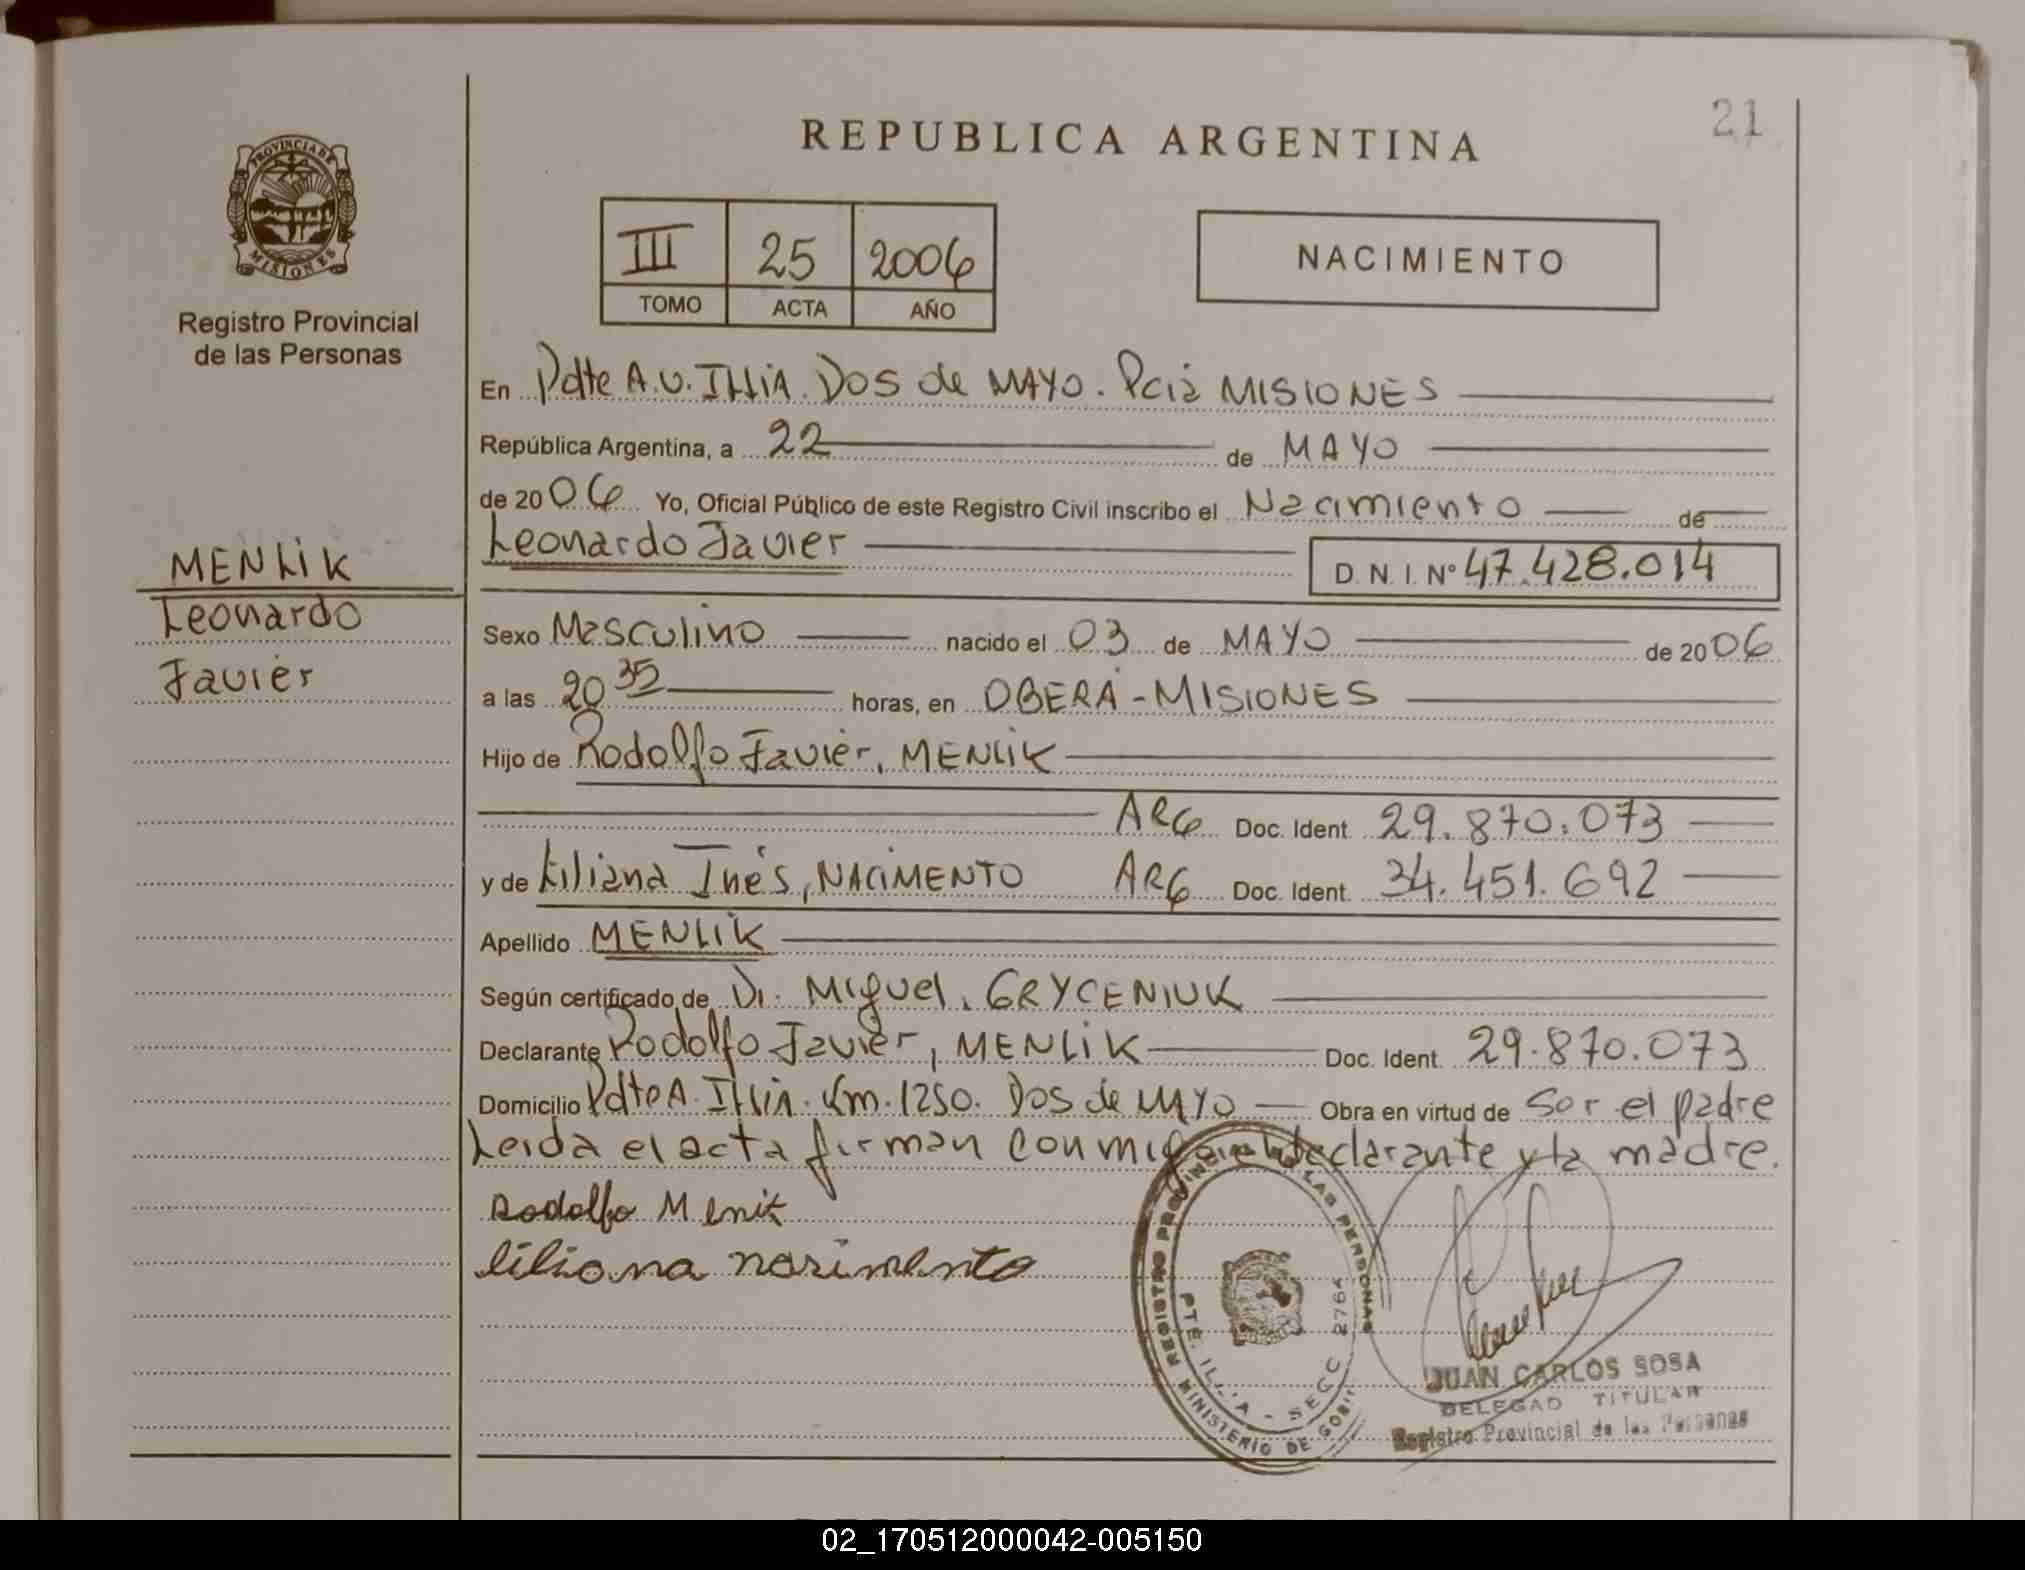 21
REPUBLICA ARGENTINA
PROVINCIA DE
MISIONES
Registro Provincial
de las Personas
III 25 2006
TOMO ACTA AÑO
NACIMIENTO
En Pdte A.U. IllIA. Dos de MAYO. Pcia MISIONES
República Argentina, a 22 de MAYO
de 2006 Yo, Oficial Público de este Registro Civil inscribo el Nacimiento de
Leonardo Javier
D.N.I. Nº 47.428.014
MENLIK
Leonardo
Javier
Sexo Masculino nacido el 03 de MAYO de 2006
a las 20 35 horas, en OBERÁ - MISIONES
Hijo de Rodolfo Javier, MENLIK
ARG Doc. Ident. 29.870.073
y de Liliana Inés, NACIMENTO ARG Doc. Ident. 34.451.692
Apellido MENLIK
Según certificado de Dr. Miguel, GRYCENIUK
Declarante Rodolfo Javier, MENLIK Doc. Ident. 29.870.073
Domicilio Pdte A. IllIA. Km. 1250. Dos de MAYO Obra en virtud de Ser el padre
Leida el acta firman conmigo el declarante y la madre.
Rodolfo Menik
liliana nasimento
REGISTRO PROVINCIAL DE LAS PERSONAS
MINISTERIO DE GOB
PTE. ILLIA - SECC 2764
JUAN CARLOS SOSA
DELEGADO TITULAR
Registro Provincial de las Personas
02_170512000042-005150